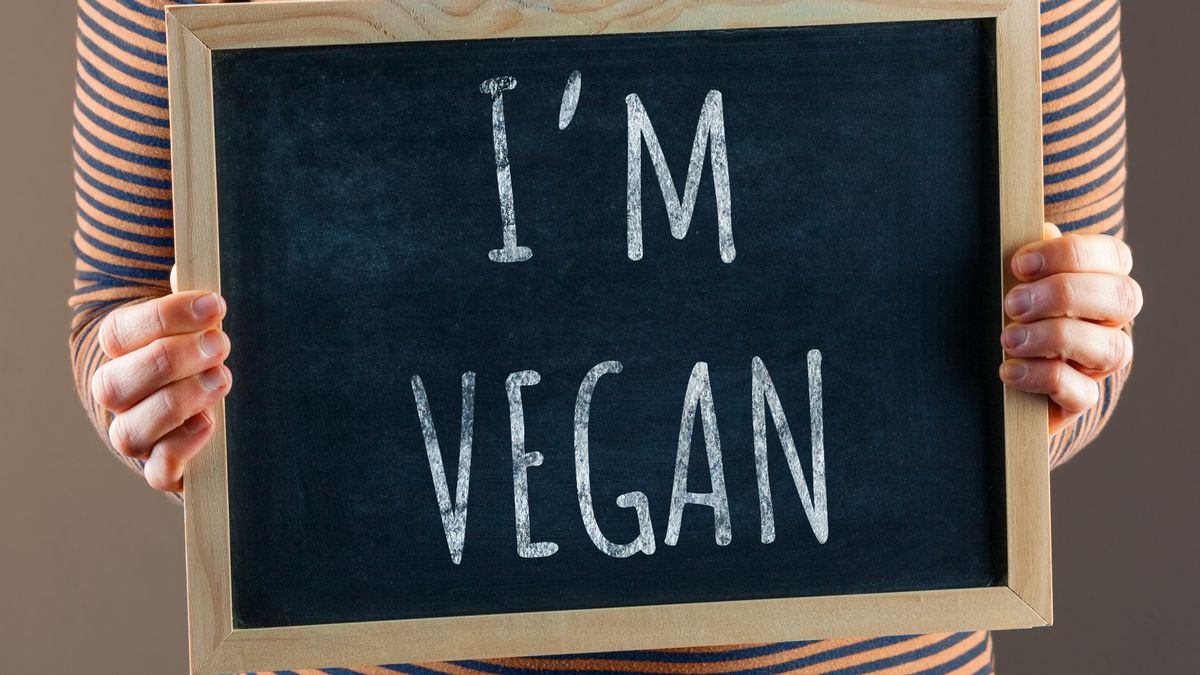 I'M
VEGAN